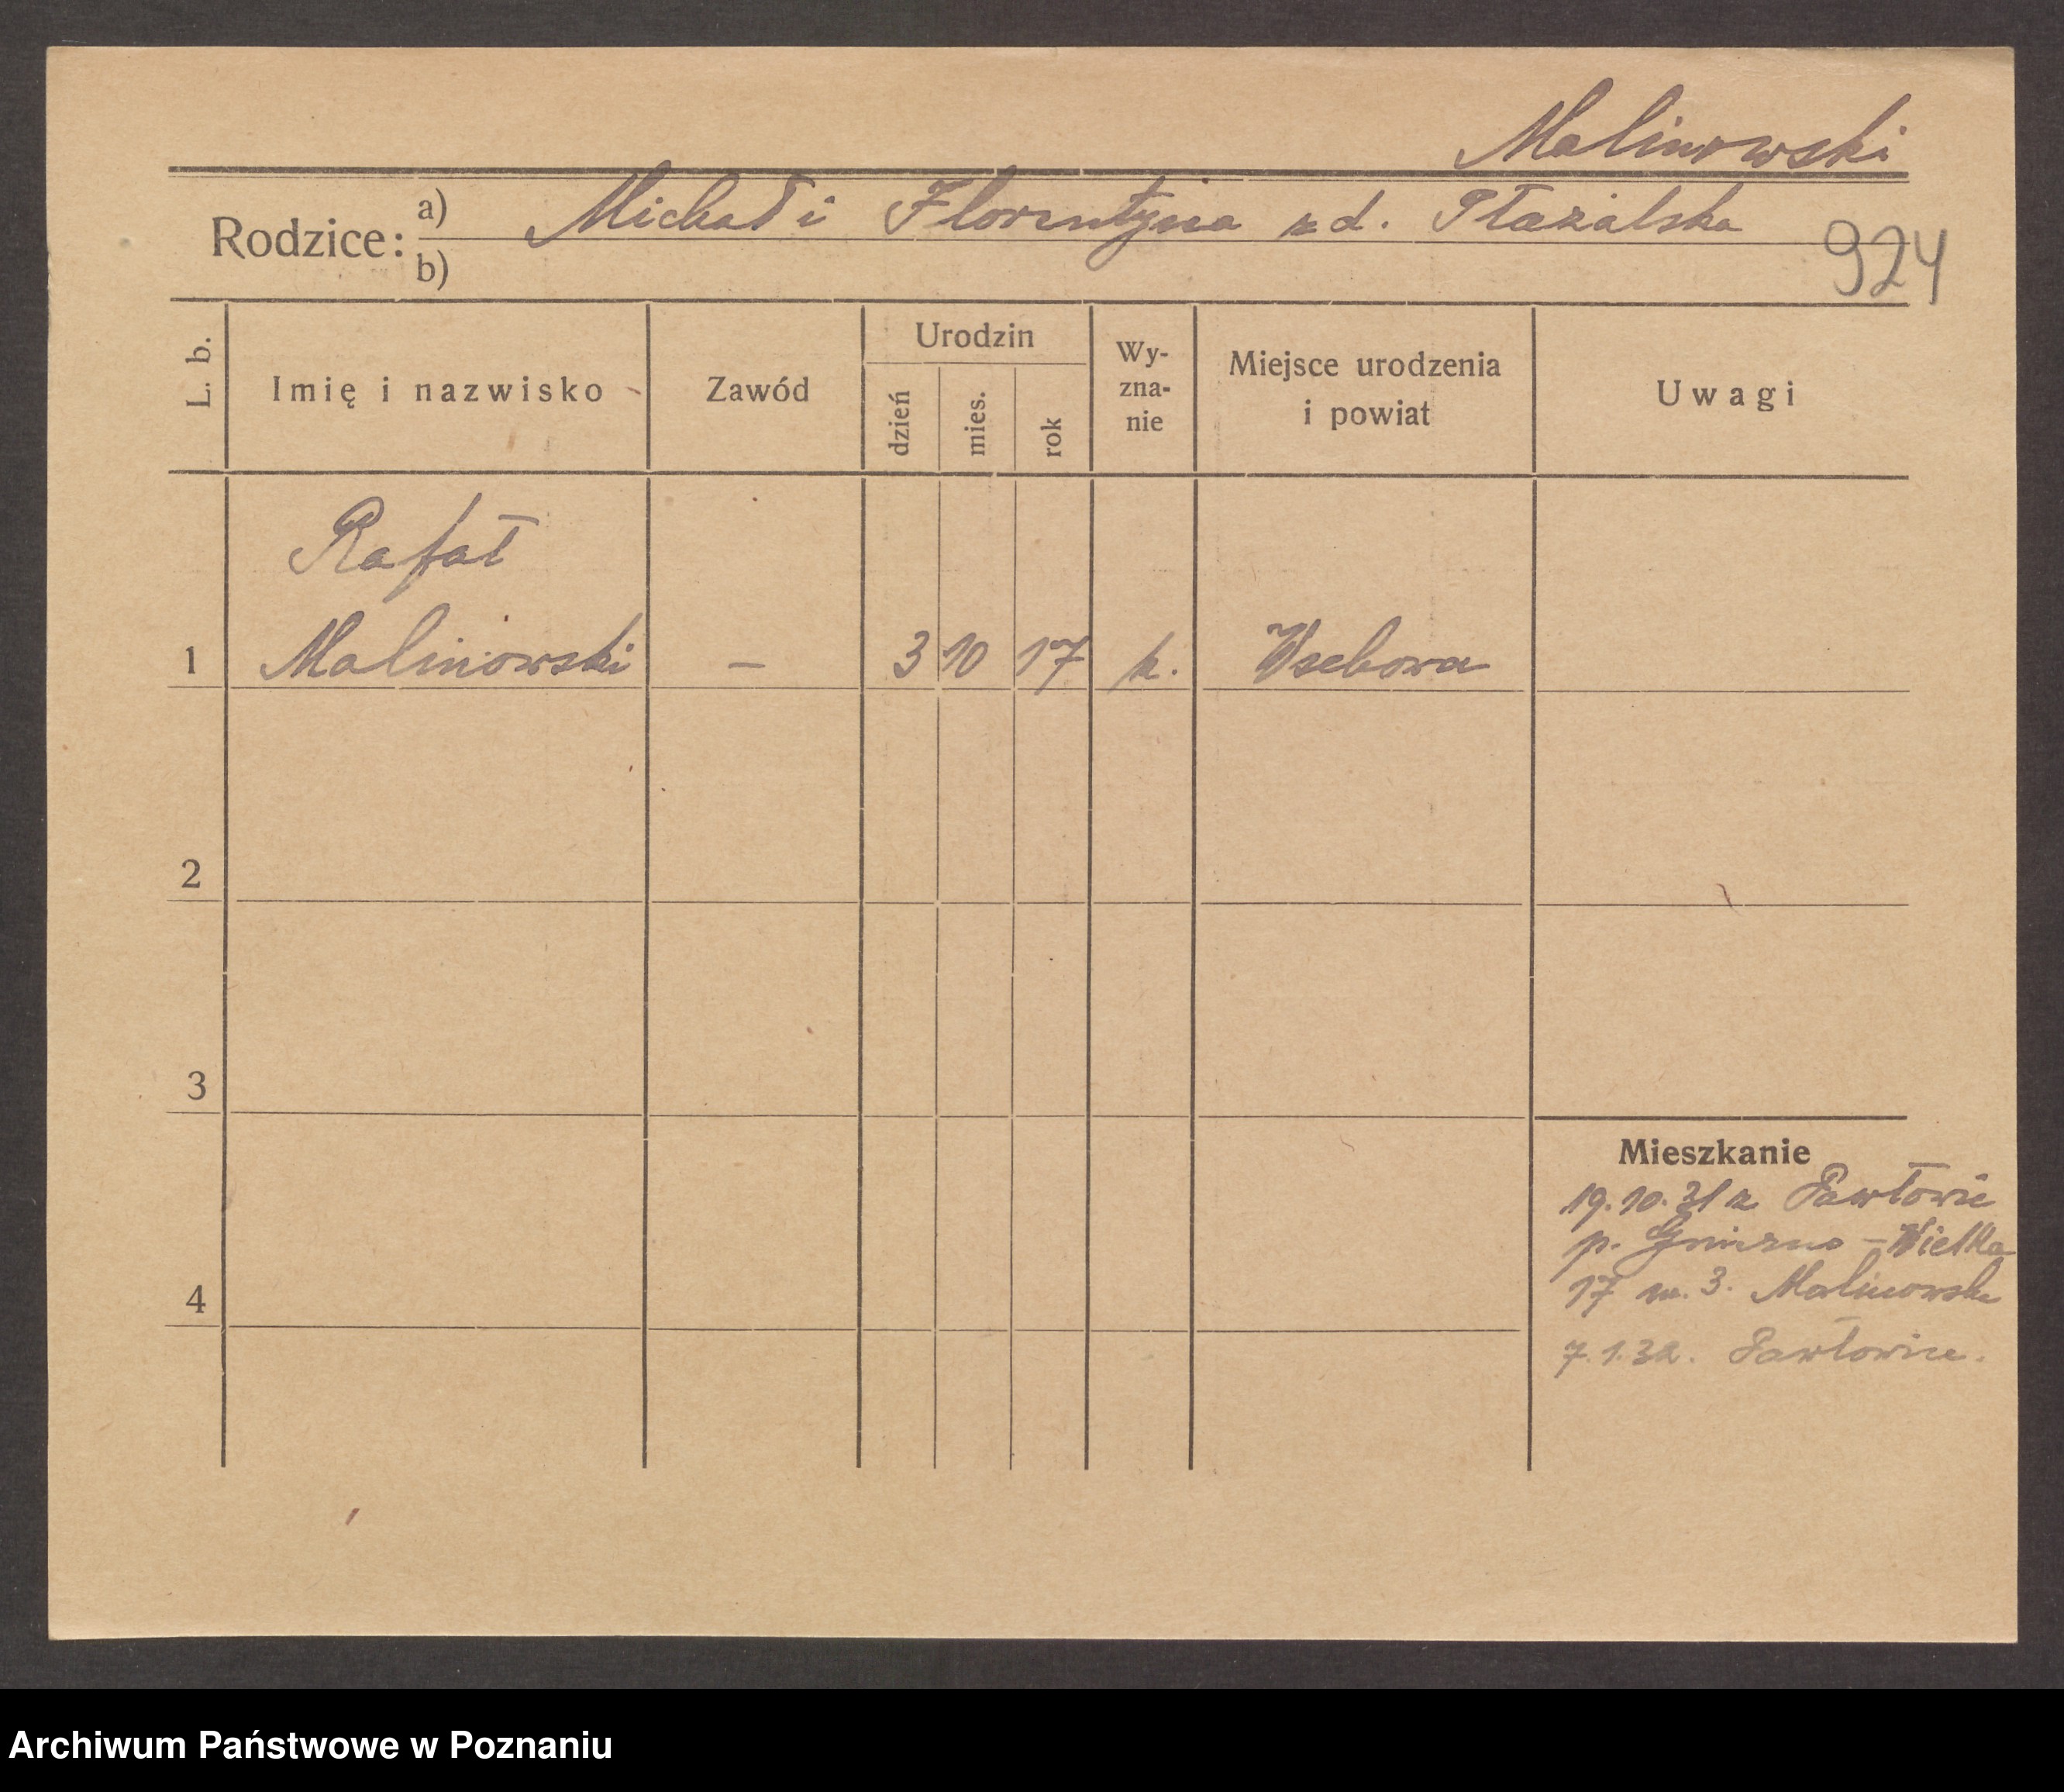 Malinowski
Rodzice: a) Michał i Florentyna zd. Płażalska
b)
924
L. b. Imię i nazwisko Zawód Urodzin dzień mies. rok Wy-zna-nie Miejsce urodzenia i powiat Uwagi
Rafał
1 Malinowski – 3 10 17 k. Wsebowa
2
3
Mieszkanie
19.10.31 z Pawłowic
p. Gniezno – Wielka
17 m. 3. Malinowska
4
7.1.32. Pawłowice.
Archiwum Państwowe w Poznaniu